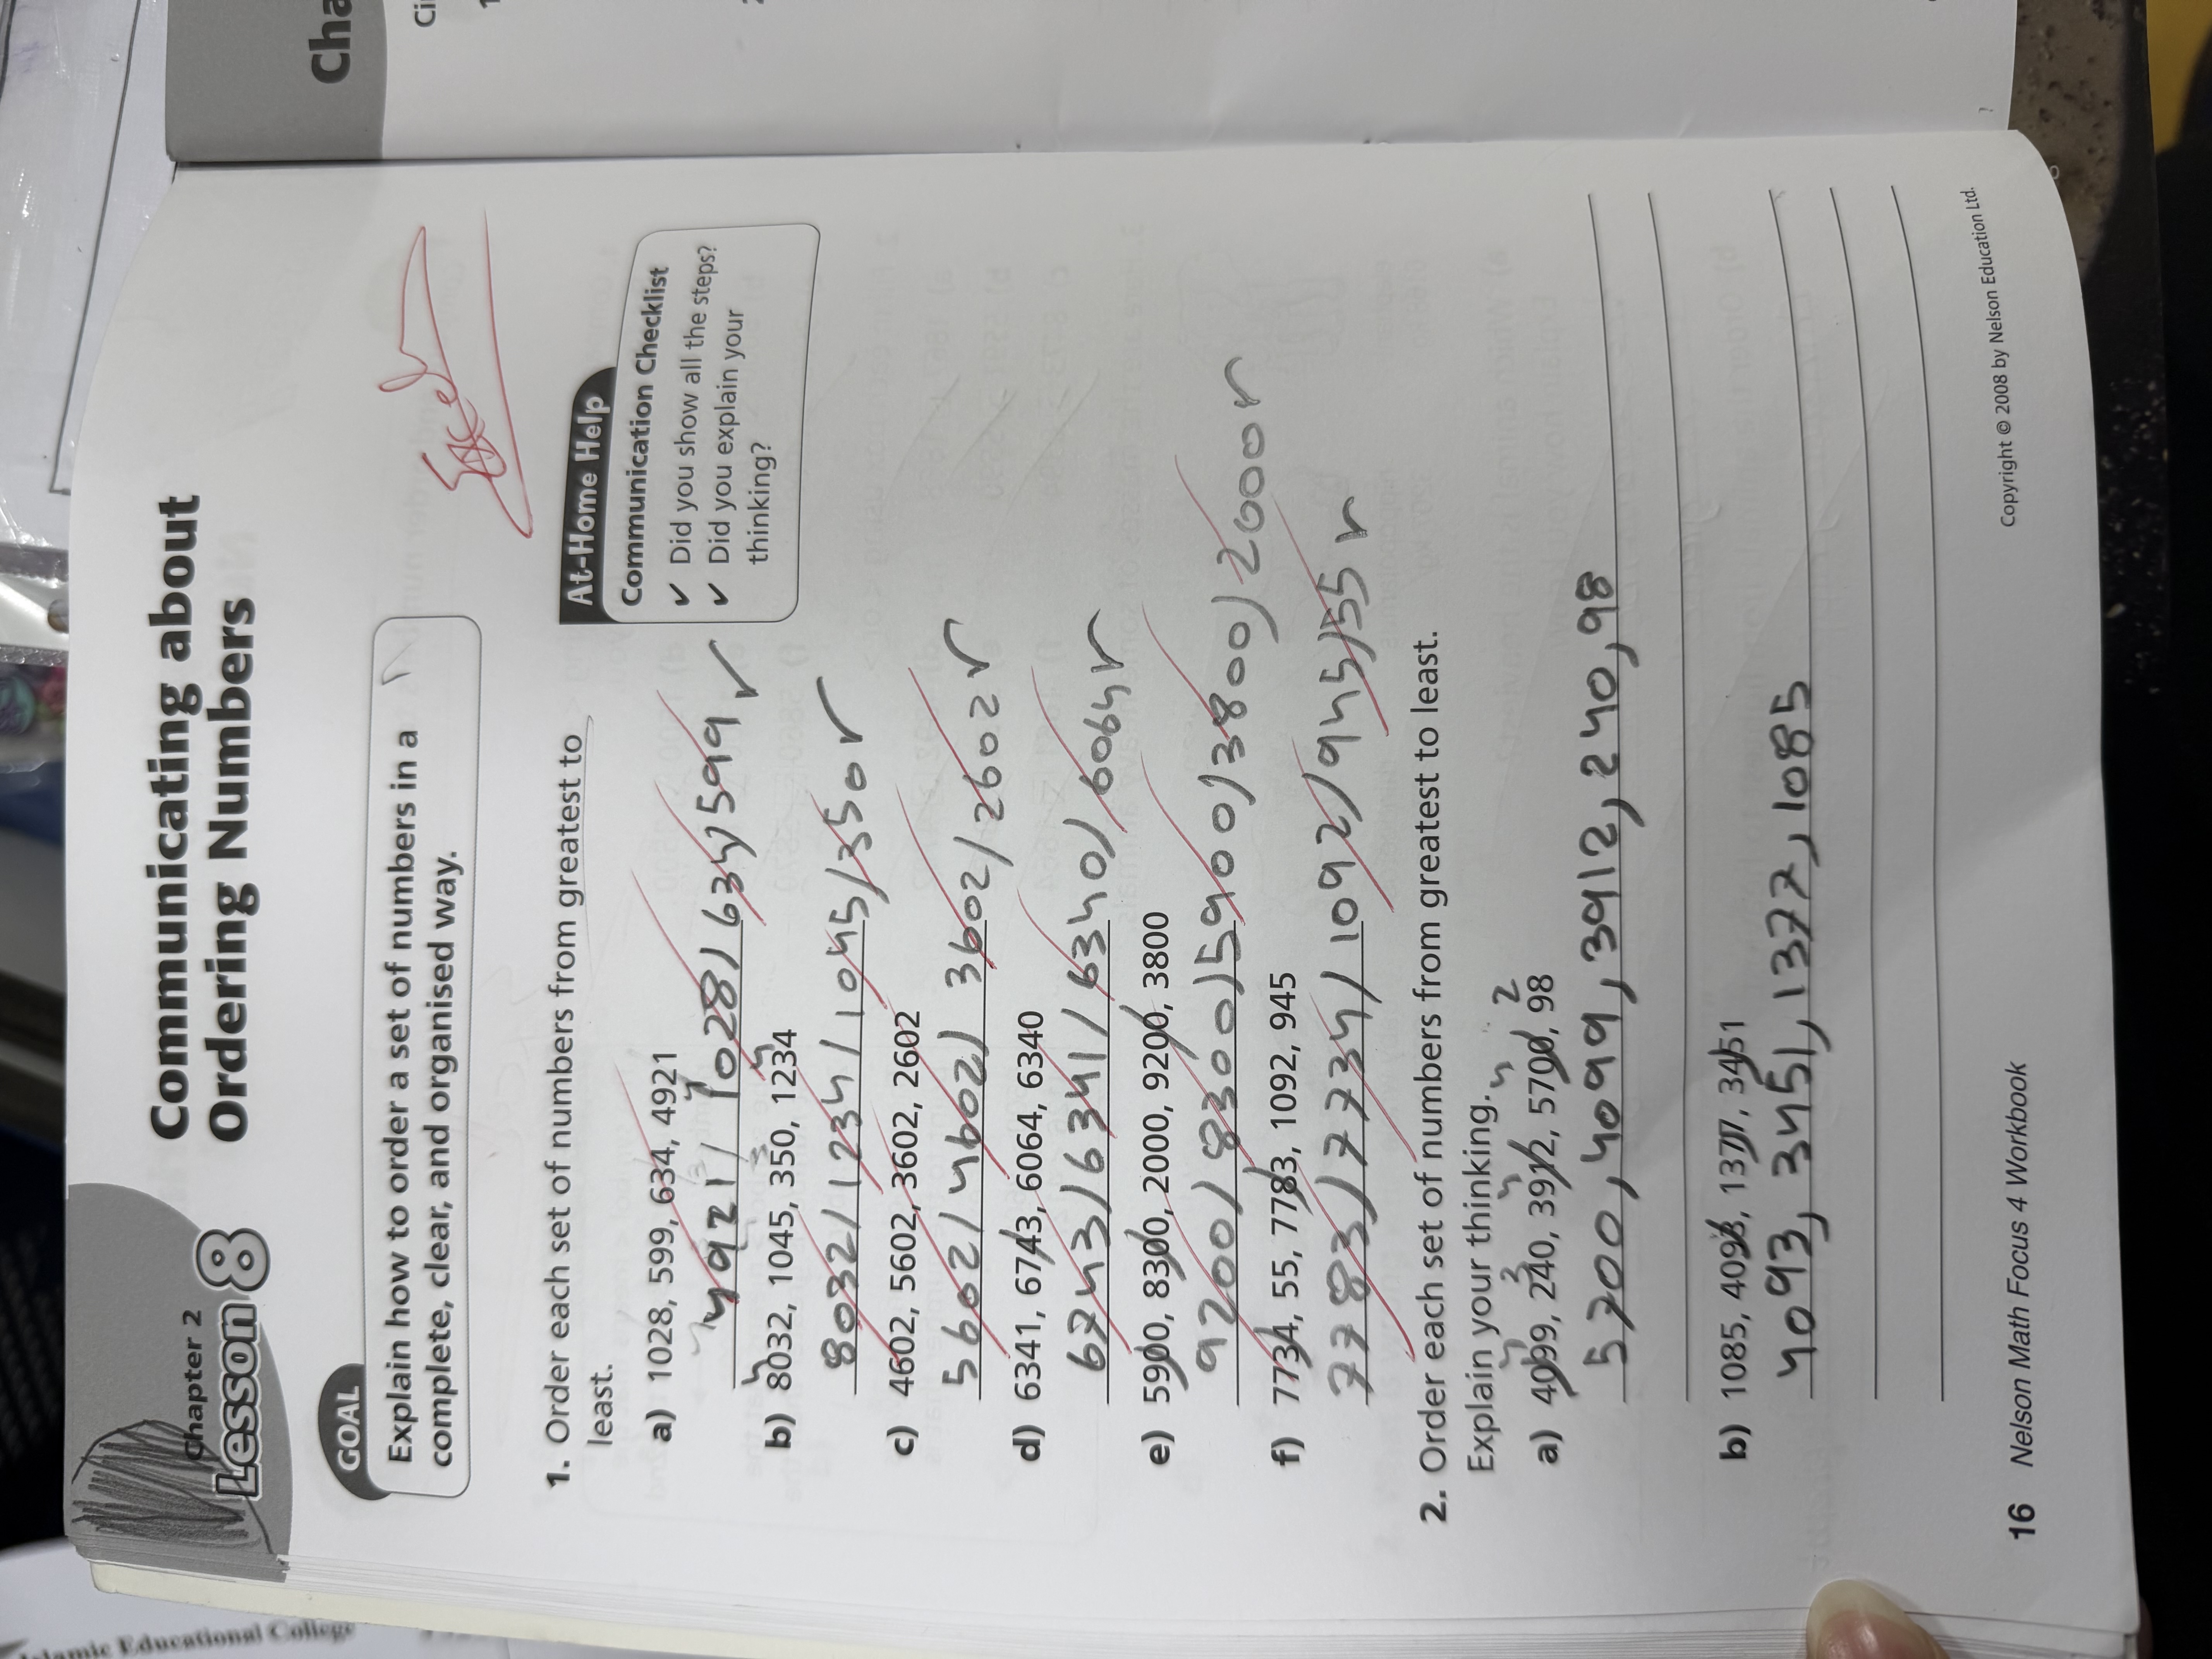 Chapter 2
Lesson 8
Communicating about
Ordering Numbers
GOAL
Explain how to order a set of numbers in a
complete, clear, and organised way.
1. Order each set of numbers from greatest to
least.
At-Home Help
Communication Checklist
✔ Did you show all the steps?
✔ Did you explain your
thinking?
a) 1028, 599, 634, 4921
4921 / 1028 / 634 / 599 ✓
b) 8032, 1045, 350, 1234
8032 / 1234 / 1045 / 350 ✓
c) 4602, 5602, 3602, 2602
5602 / 4602 / 3602 / 2602 ✓
d) 6341, 6743, 6064, 6340
6743 / 6341 / 6340 / 6064 ✓
e) 5900, 8300, 2000, 9200, 3800
9200 / 8300 / 5900 / 3800 / 2000 ✓
f) 7734, 55, 7783, 1092, 945
7783 / 7734 / 1092 / 945 / 55 ✓
2. Order each set of numbers from greatest to least.
Explain your thinking.
4 3 4 4 2
a) 4099, 240, 3912, 5700, 98
5700, 4099, 3912, 240, 98
b) 1085, 4093, 1377, 3451
4093, 3451, 1377, 1085
16 Nelson Math Focus 4 Workbook
Copyright © 2008 by Nelson Education Ltd.
Cha
Ci
Islamic Educational College